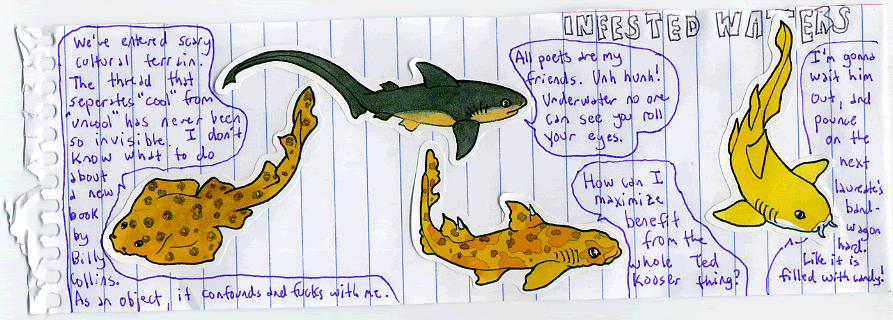 INFESTED WATERS
We've entered scary
cultural terrain.
The thread that
seperates "cool" from
"uncool" has never been
so invisible. I don't
know what to do
about
a new
book
by
Billy
Collins.
As an object, it confounds and fucks with me.
All poets are my
friends. Unh hunh!
Underwater no one
can see you roll
your eyes.
How can I
maximize
benefit
from the
whole Ted
Kooser thing?
I'm gonna
wait him
out, and
pounce
on the
next
laureate's
band-
wagon
hard.
Like it is
filled with candy!